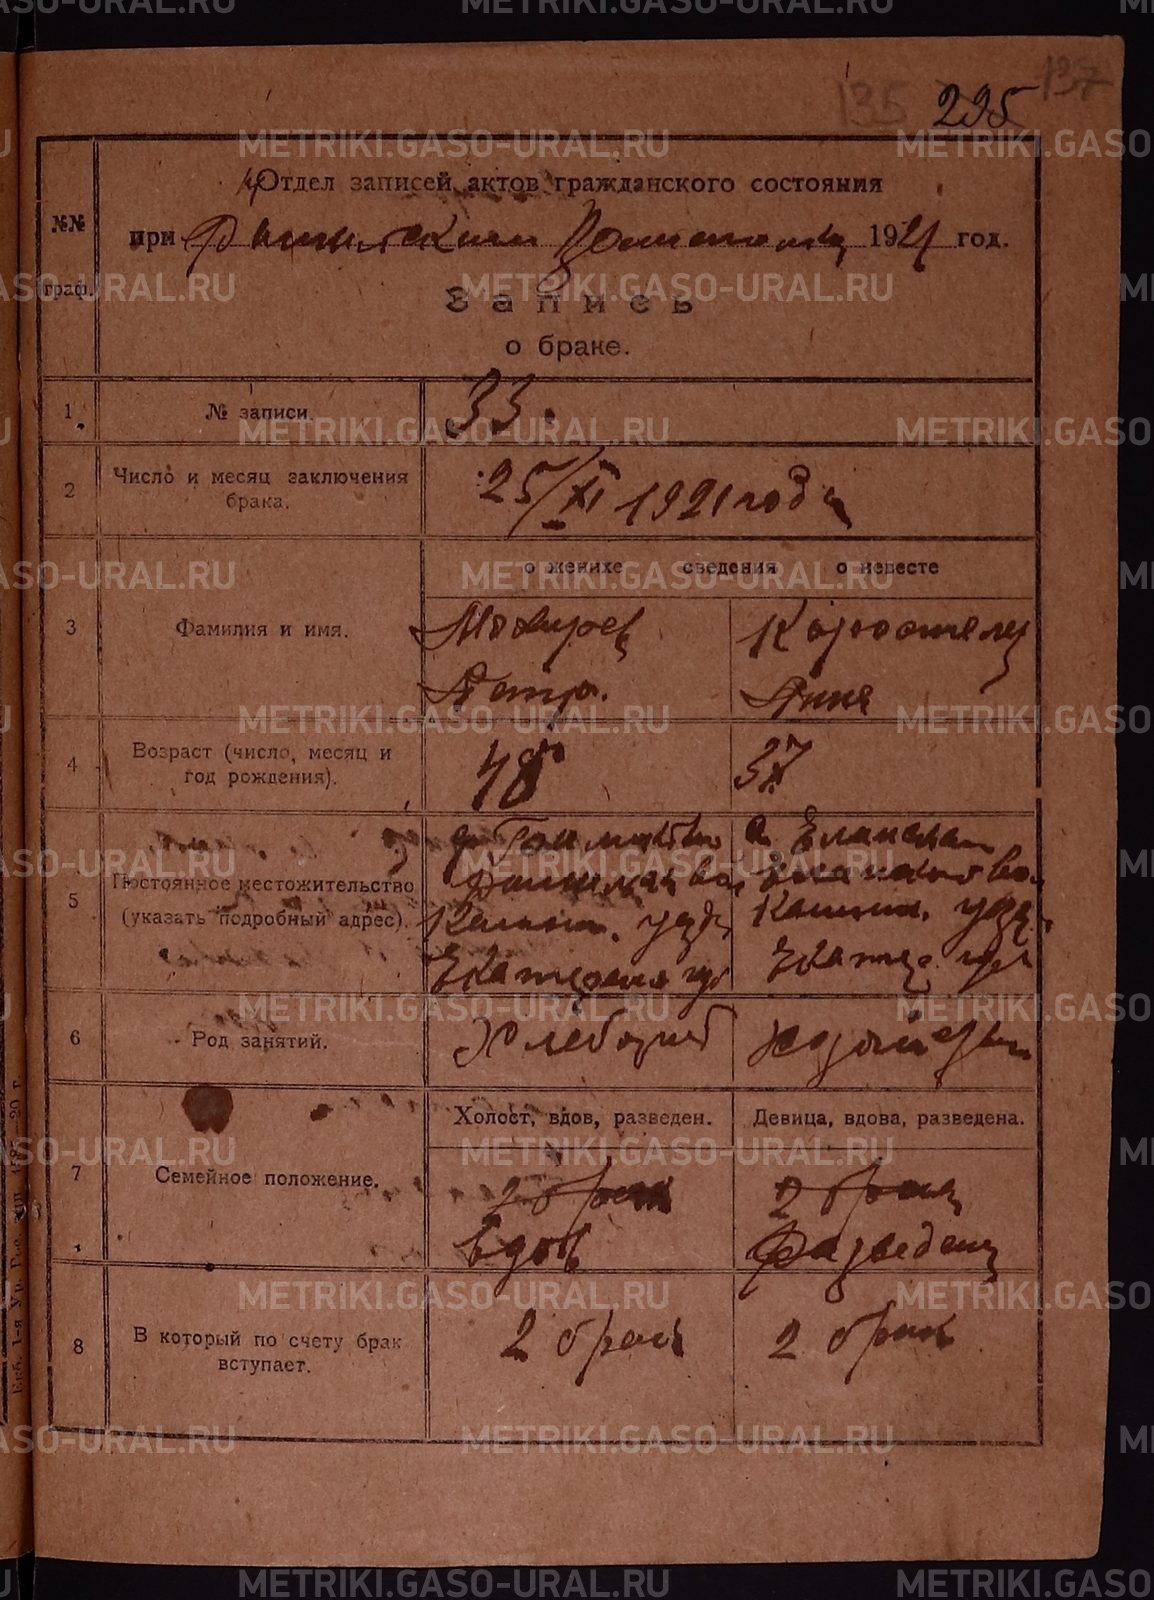 135 295 137
Отдел записей актов гражданского состояния
№№ граф.
при 1921 год.
Запись
о браке.
1 № записи. 33.
2 Число и месяц заключения брака. 25/XI 1921 года
о женихе сведения о невесте
3 Фамилия и имя.
Мокиров
Петр.
Коростелев
Анна
4 Возраст (число, месяц и год рождения). 48 37
5 Постоянное местожительство (указать подробный адрес).
вол
Камыш. уезда
Екатерин губ
с. Еланская
вол
Камыш. уезд
Екатер. губ
6 Род занятий. Хлебороб
7 Семейное положение.
Холост, вдов, разведен. Девица, вдова, разведена.
2 брак 2 брак
вдов Разведена
8 В который по счету брак вступает. 2 брак 2 брак
METRIKI.GASO-URAL.RU